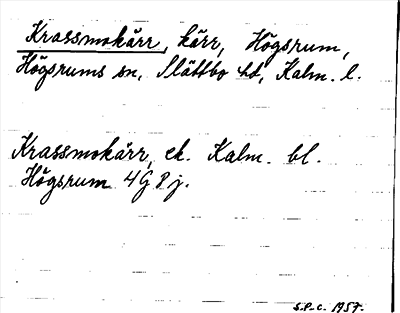 Krassmokärr, kärr, Högsrum,
Högsrums sn, Slättbo hd, Kalm. l.
Krassmokärr, ek. Kalm. bl.
Högsrum 4G8j.
S.P-C. 1957.